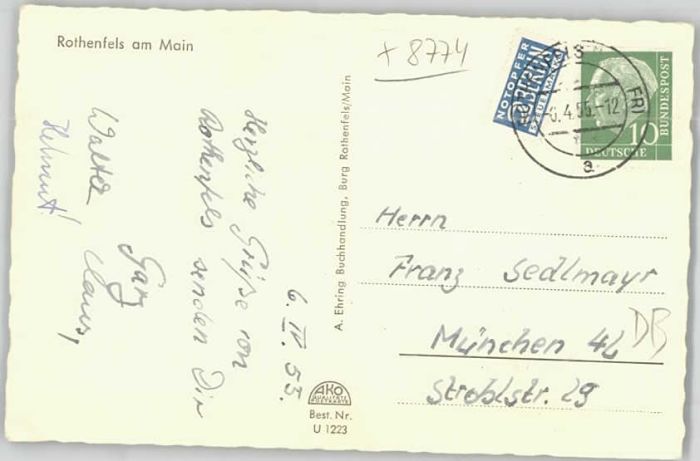 Rothenfels am Main
+ 8774
NOTOPFER
2 BERLIN
STEUERMARKE
-6.4.55.-12
a
10
DEUTSCHE
BUNDESPOST
6. IV. 55.
Herzliche Grüße von
Rothenfels senden Dir
Claus,
Walter
Helmut!
A. Ehring Buchhandlung, Burg Rothenfels/Main
AKO
Best. Nr.
U 1223
Herrn
Franz Sedlmayr
München 42
DB
Stroblstr. 29